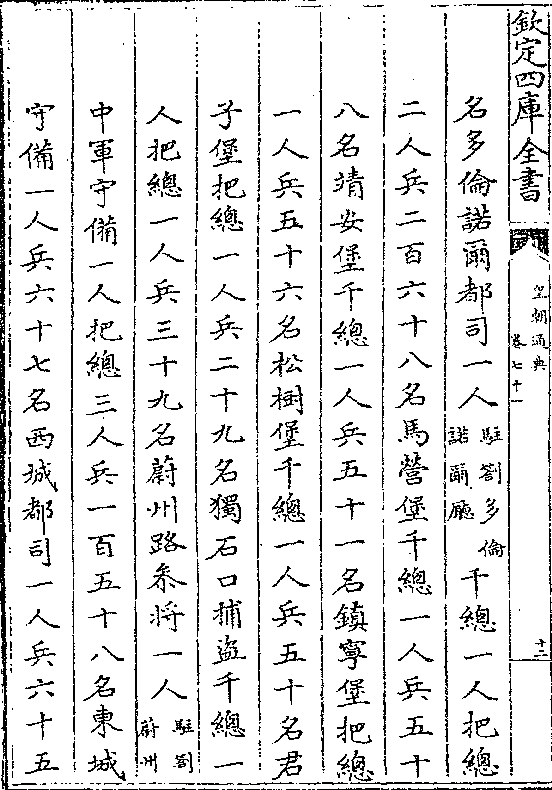 欽定四庫全書
皇朝通典
卷七十一
十二
名多倫諾爾都司一人駐劄多倫諾爾廳千總一人把總
二人兵二百六十八名馬營堡千總一人兵五十
八名靖安堡千總一人兵五十一名鎮寧堡把總
一人兵五十六名松樹堡千總一人兵五十名君
子堡把總一人兵二十九名獨石口捕盜千總一
人把總一人兵三十九名蔚州路叅将一人駐劄蔚州
中軍守備一人把總三人兵一百五十八名東城
守備一人兵六十七名西城都司一人兵六十五